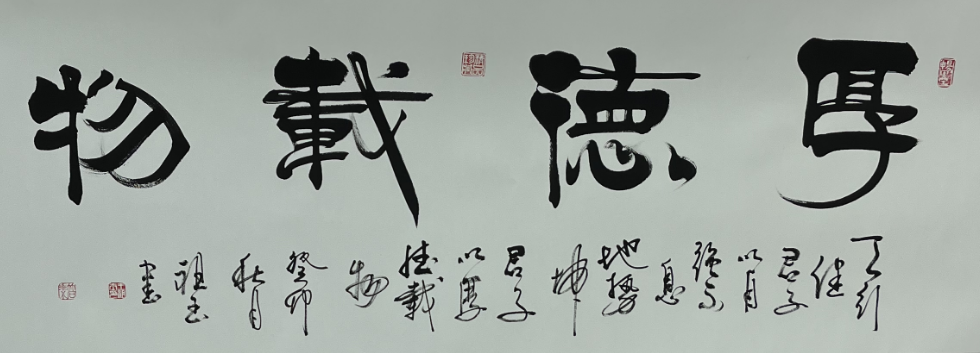 厚德載物
天行
健
君子
以自
强不
息
地勢
坤
君子
以厚
德載
物
癸卯
秋月
祖玉
書